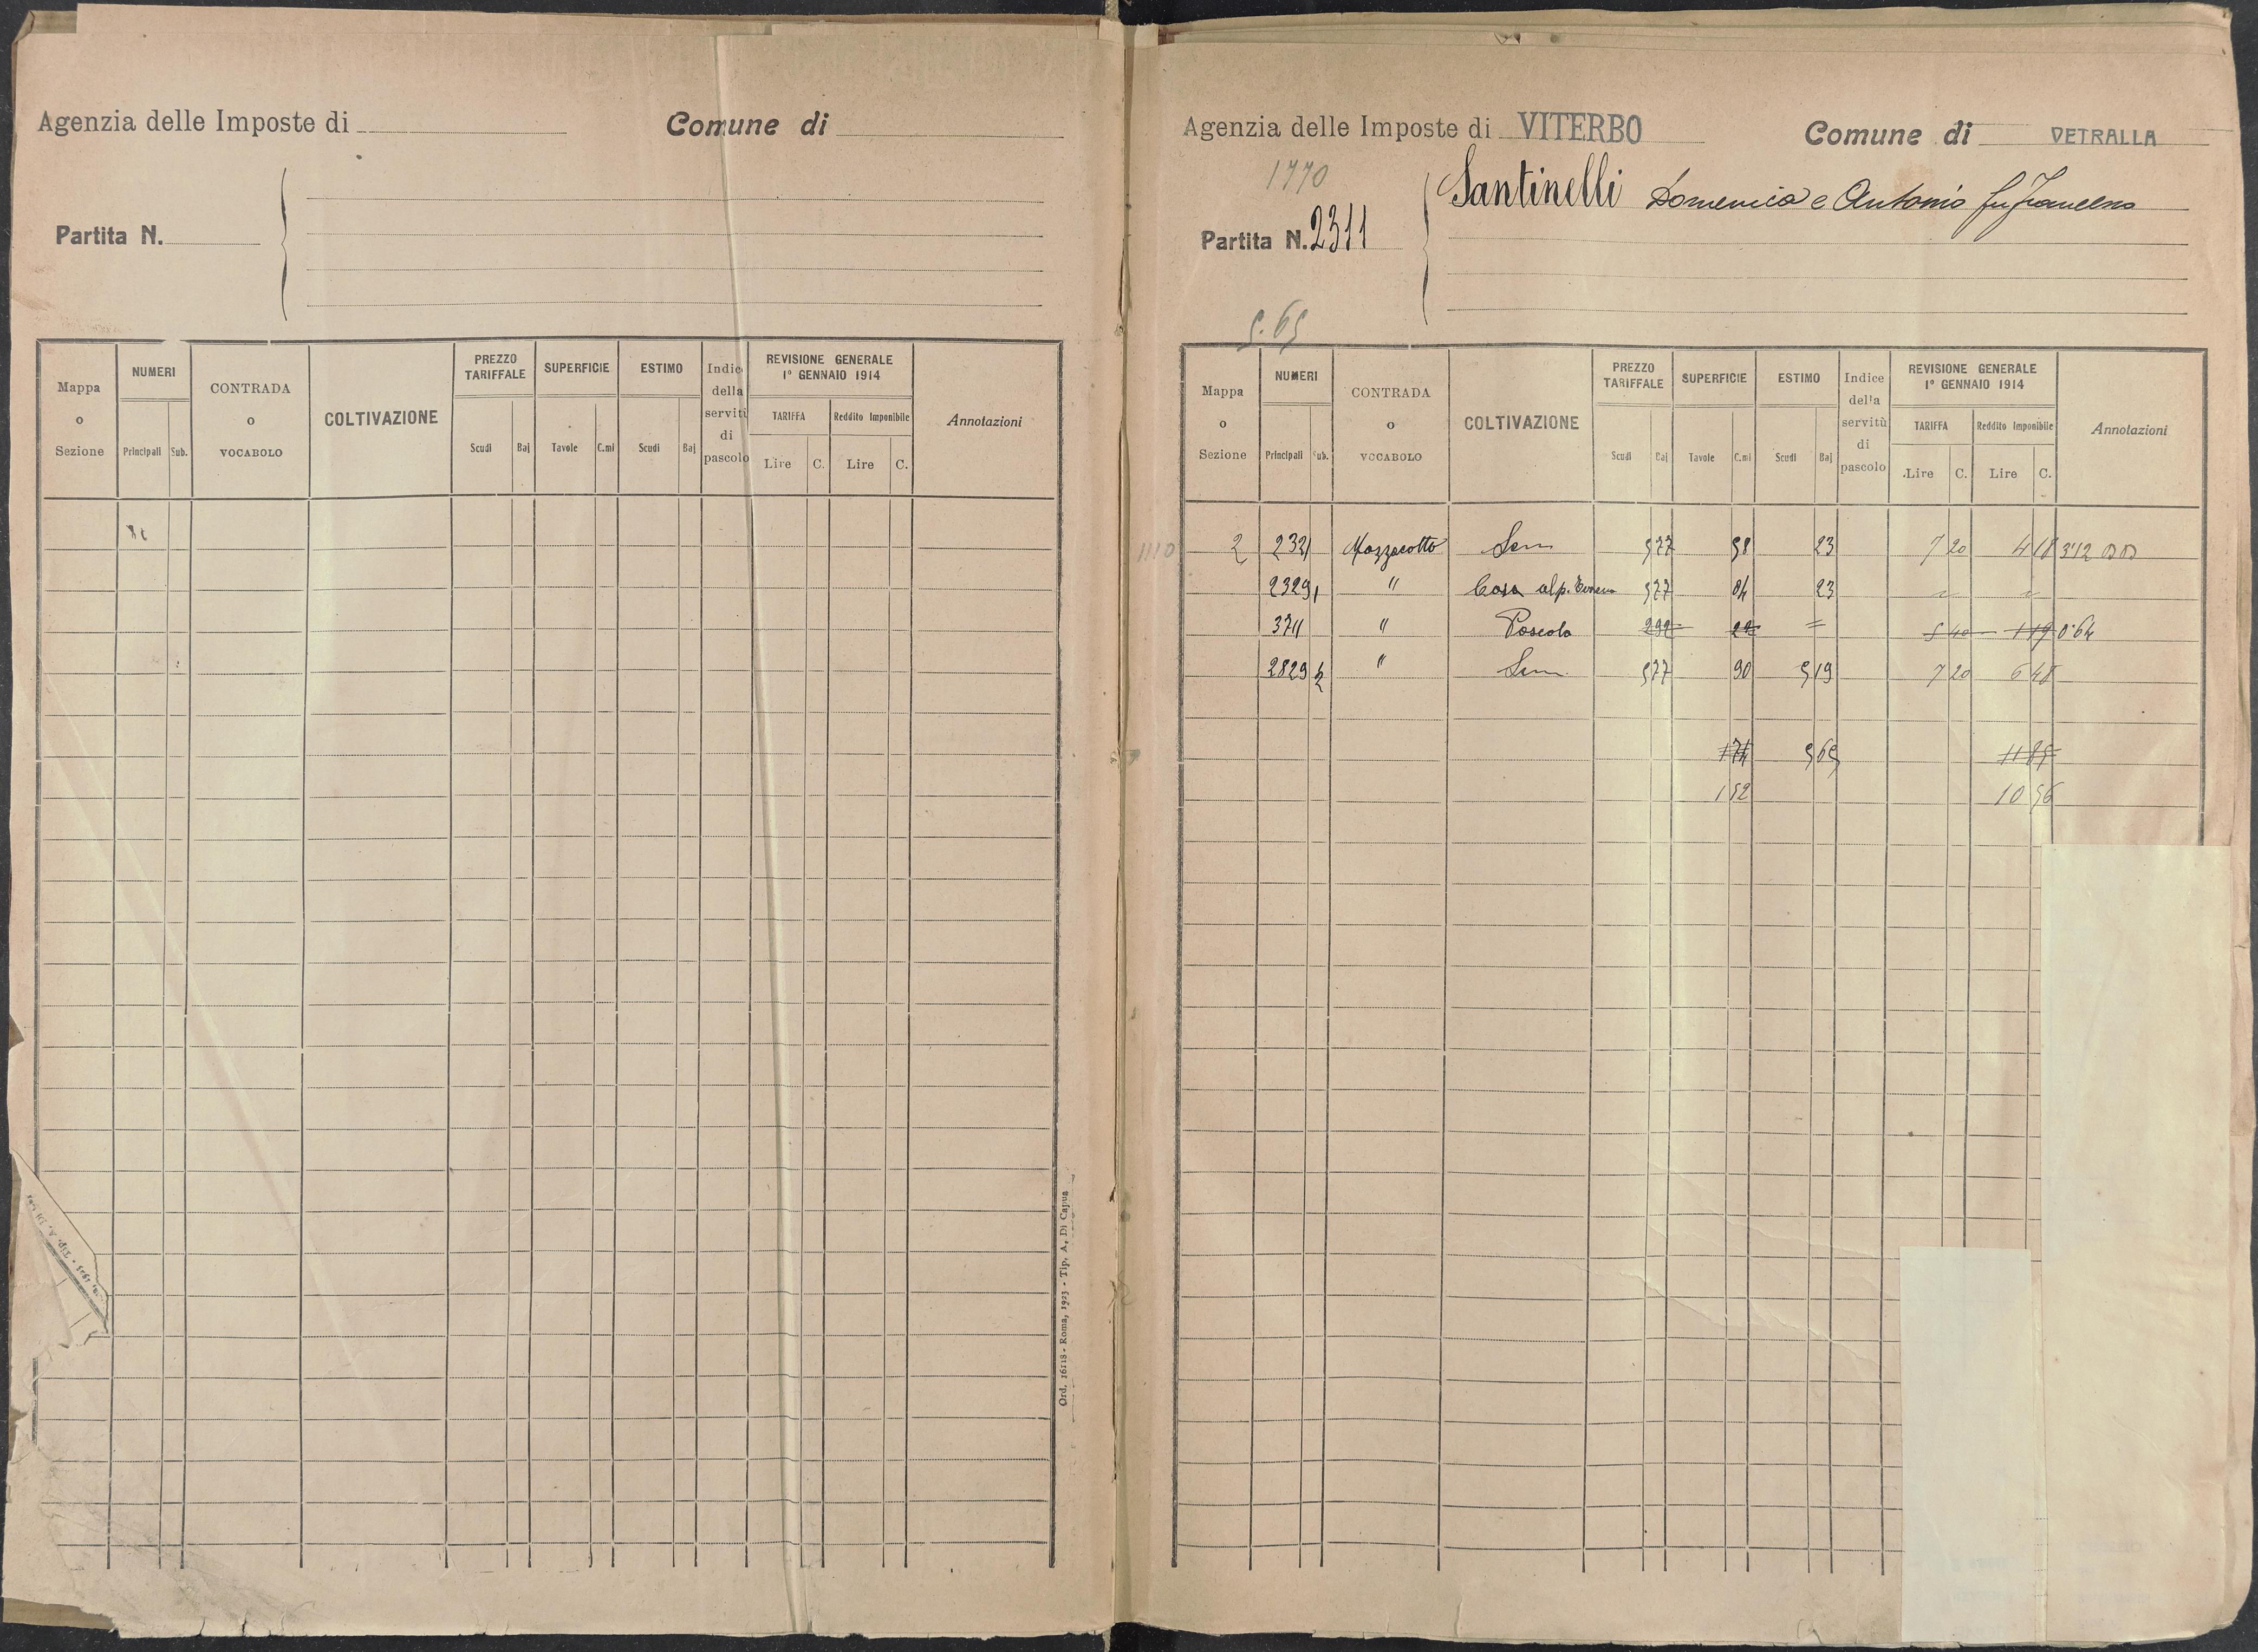 Agenzia delle Imposte di
Comune di
Partita N.
Mappa o Sezione
NUMERI
Principali Sub.
CONTRADA o VOCABOLO
COLTIVAZIONE
PREZZO TARIFFALE
Scudi Baj
SUPERFICIE
Tavole C.mi
ESTIMO
Scudi Baj
Indice della servitù di pascolo
REVISIONE GENERALE
1° GENNAIO 1914
TARIFFA Reddito Imponibile
Lire C. Lire C.
Annotazioni
Ord. 16118 - Roma, 1923 - Tip. A. Di Capua
Agenzia delle Imposte di VITERBO
Comune di VETRALLA
1770
Partita N. 2311
Santinelli Domenico e Antonio fu Francesco
5.65
Mappa o Sezione
NUMERI
Principali Sub.
CONTRADA o VOCABOLO
COLTIVAZIONE
PREZZO TARIFFALE
Scudi Baj
SUPERFICIE
Tavole C.mi
ESTIMO
Scudi Baj
Indice della servitù di pascolo
REVISIONE GENERALE
1° GENNAIO 1914
TARIFFA Reddito Imponibile
Lire C. Lire C.
Annotazioni
1110 2 232 Mazzacotto Sem 577 58 23 7 20 4 18 3'12
2329 1 " Casa 577 04 23
371 " Pascolo 292 22 = 5 40 1 19 0'64
2829 " Sem 577 90 519 7 20 6 48
174 565 11 85
152 10 96